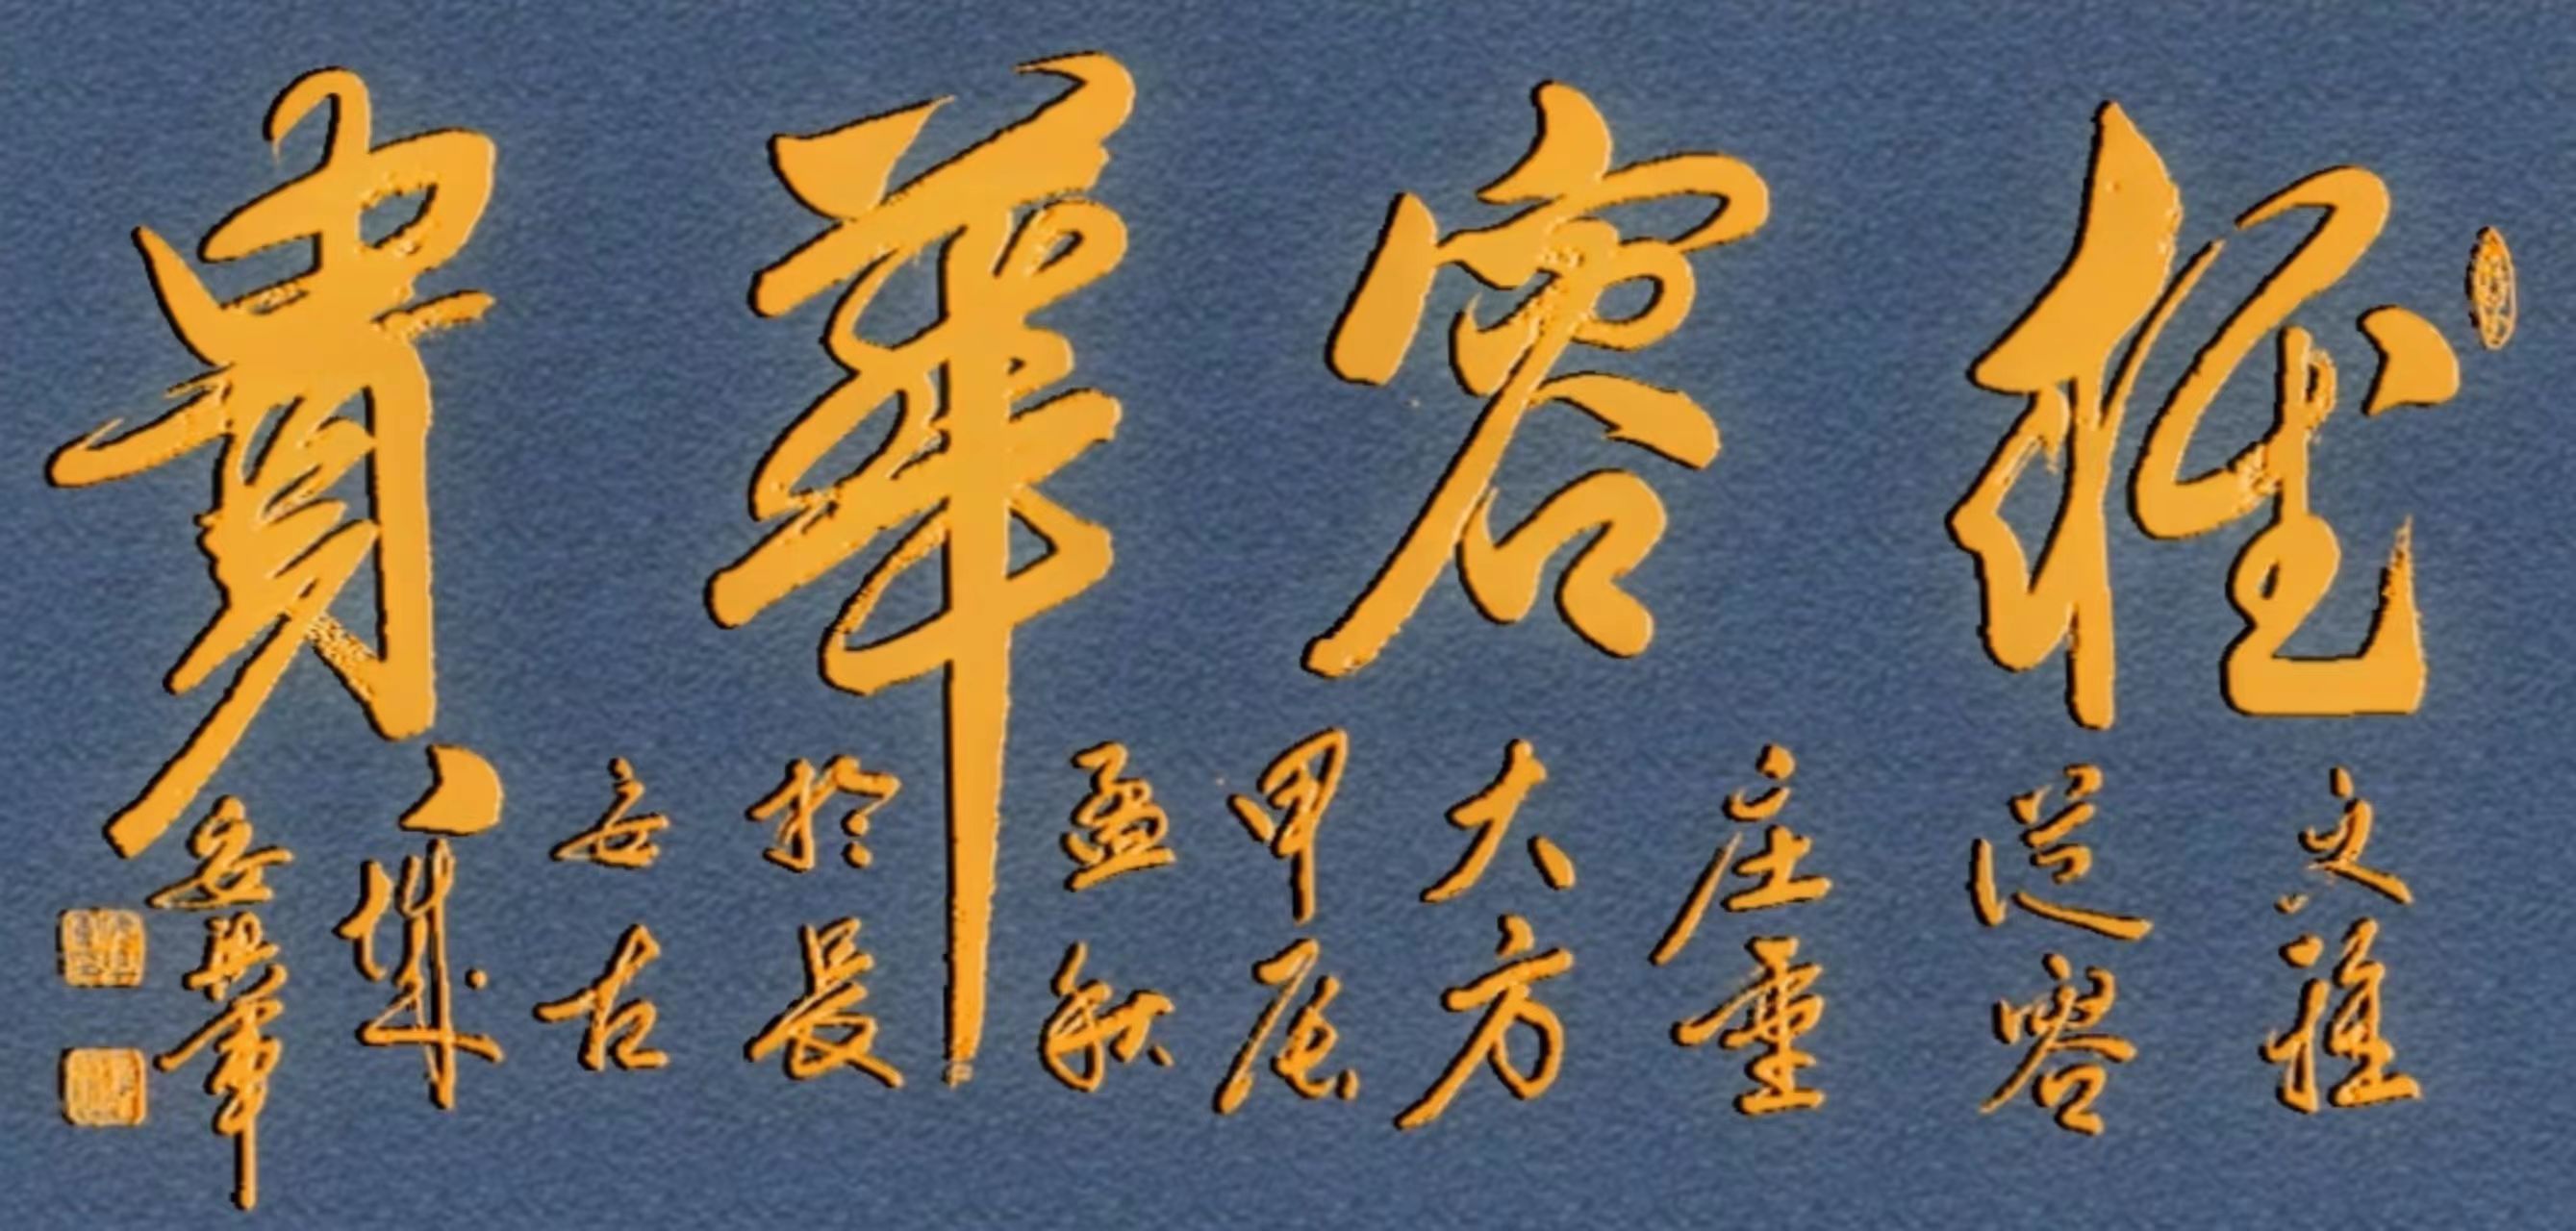 雍容華貴
文雅
從容
庄重
大方
甲辰
孟秋
於長
安古
城